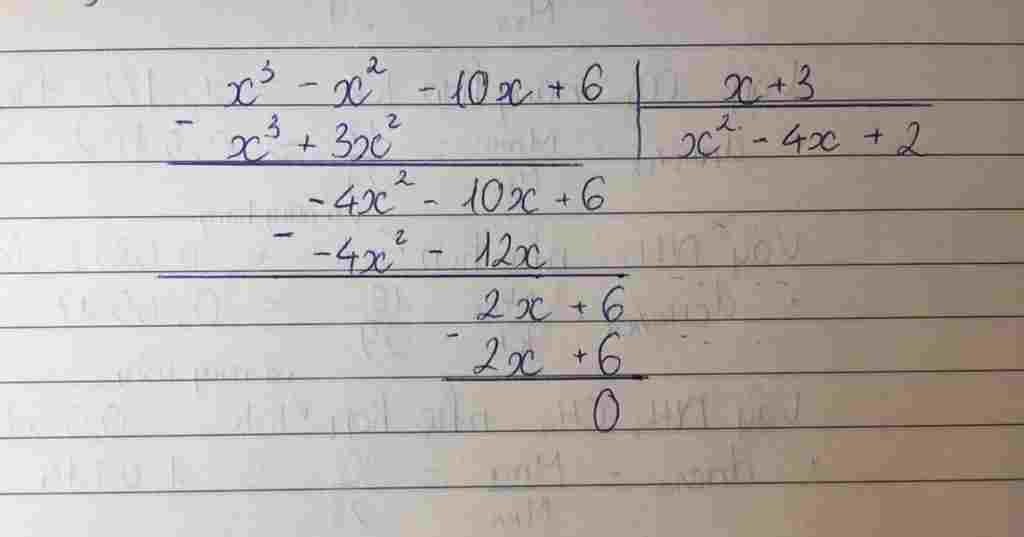 x³ - x² - 10x + 6 | x + 3
- x³ + 3x² | x² - 4x + 2
-4x² - 10x + 6
- -4x² - 12x
2x + 6
- 2x + 6
0